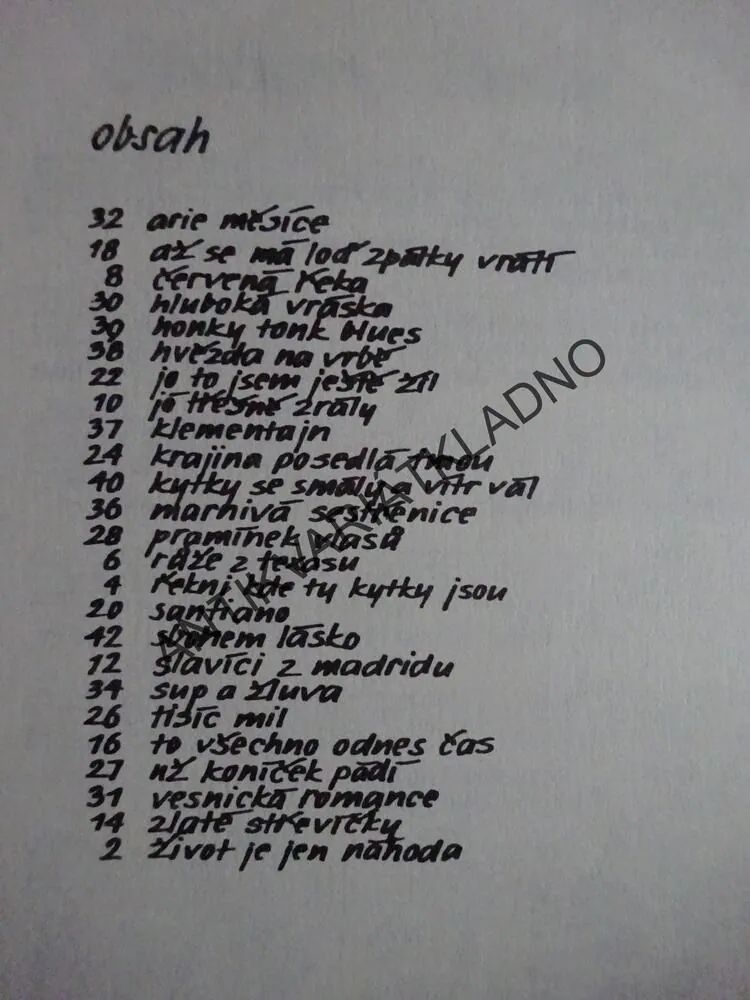 obsah
32 arie měsíce
18 až se má loď zpátky vrátí
8 červená řeka
30 hluboká vráska
39 honky tonk blues
38 hvězda na vrbě
22 jo to jsem ještě žil
10 jó třešně zrály
37 klementajn
24 krajina posedlá tmou
40 kytky se smály a vítr vál
36 marnivá sestřenice
28 pramínek vlasů
6 růže z texasu
4 řekni kde ty kytky jsou
20 santiano
42 sbohem lásko
12 slavíci z madridu
34 sup a žluva
26 tisíc mil
16 to všechno odnes čas
27 už koníček pádí
31 vesnická romance
14 zlaté střevíčky
2 život je jen náhoda
ANTIKVARIÁT KLADNO